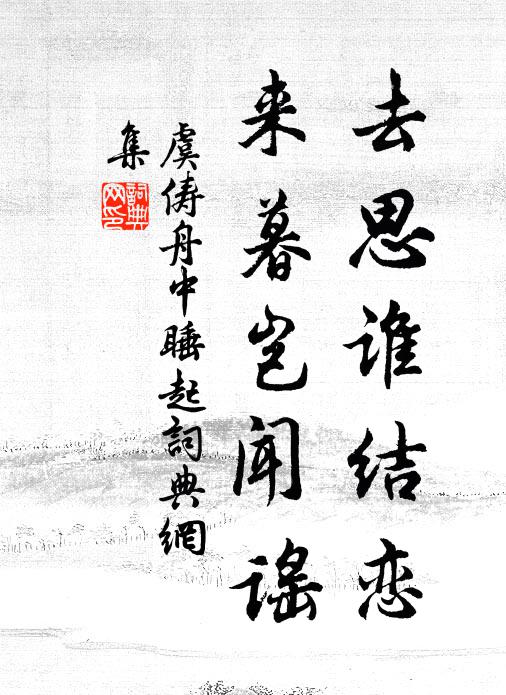 去思谁结恋
来暮岂闻谣
虞俦舟中睡起词典網
集
詞典
网印